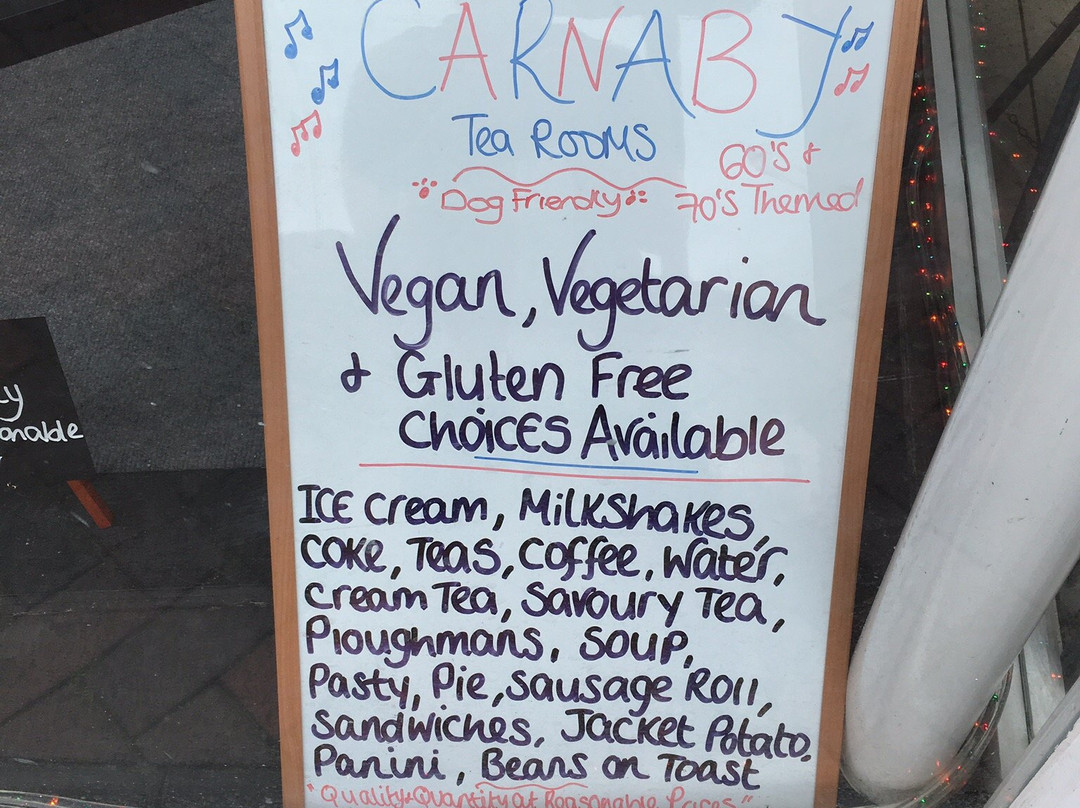 CARNABY
Tea ROOMS
60's &
Dog Friendly
70's Themed
Vegan, Vegetarian
& Gluten Free
Choices Available
ICE Cream, Milkshakes,
Coke, Teas, Coffee, Water,
Cream Tea, Savoury Tea,
Ploughmans, Soup,
Pasty, Pie, Sausage Roll,
Sandwiches, Jacket Potato,
Panini, Beans on Toast
"Quality & Quantity at Reasonable Prices"